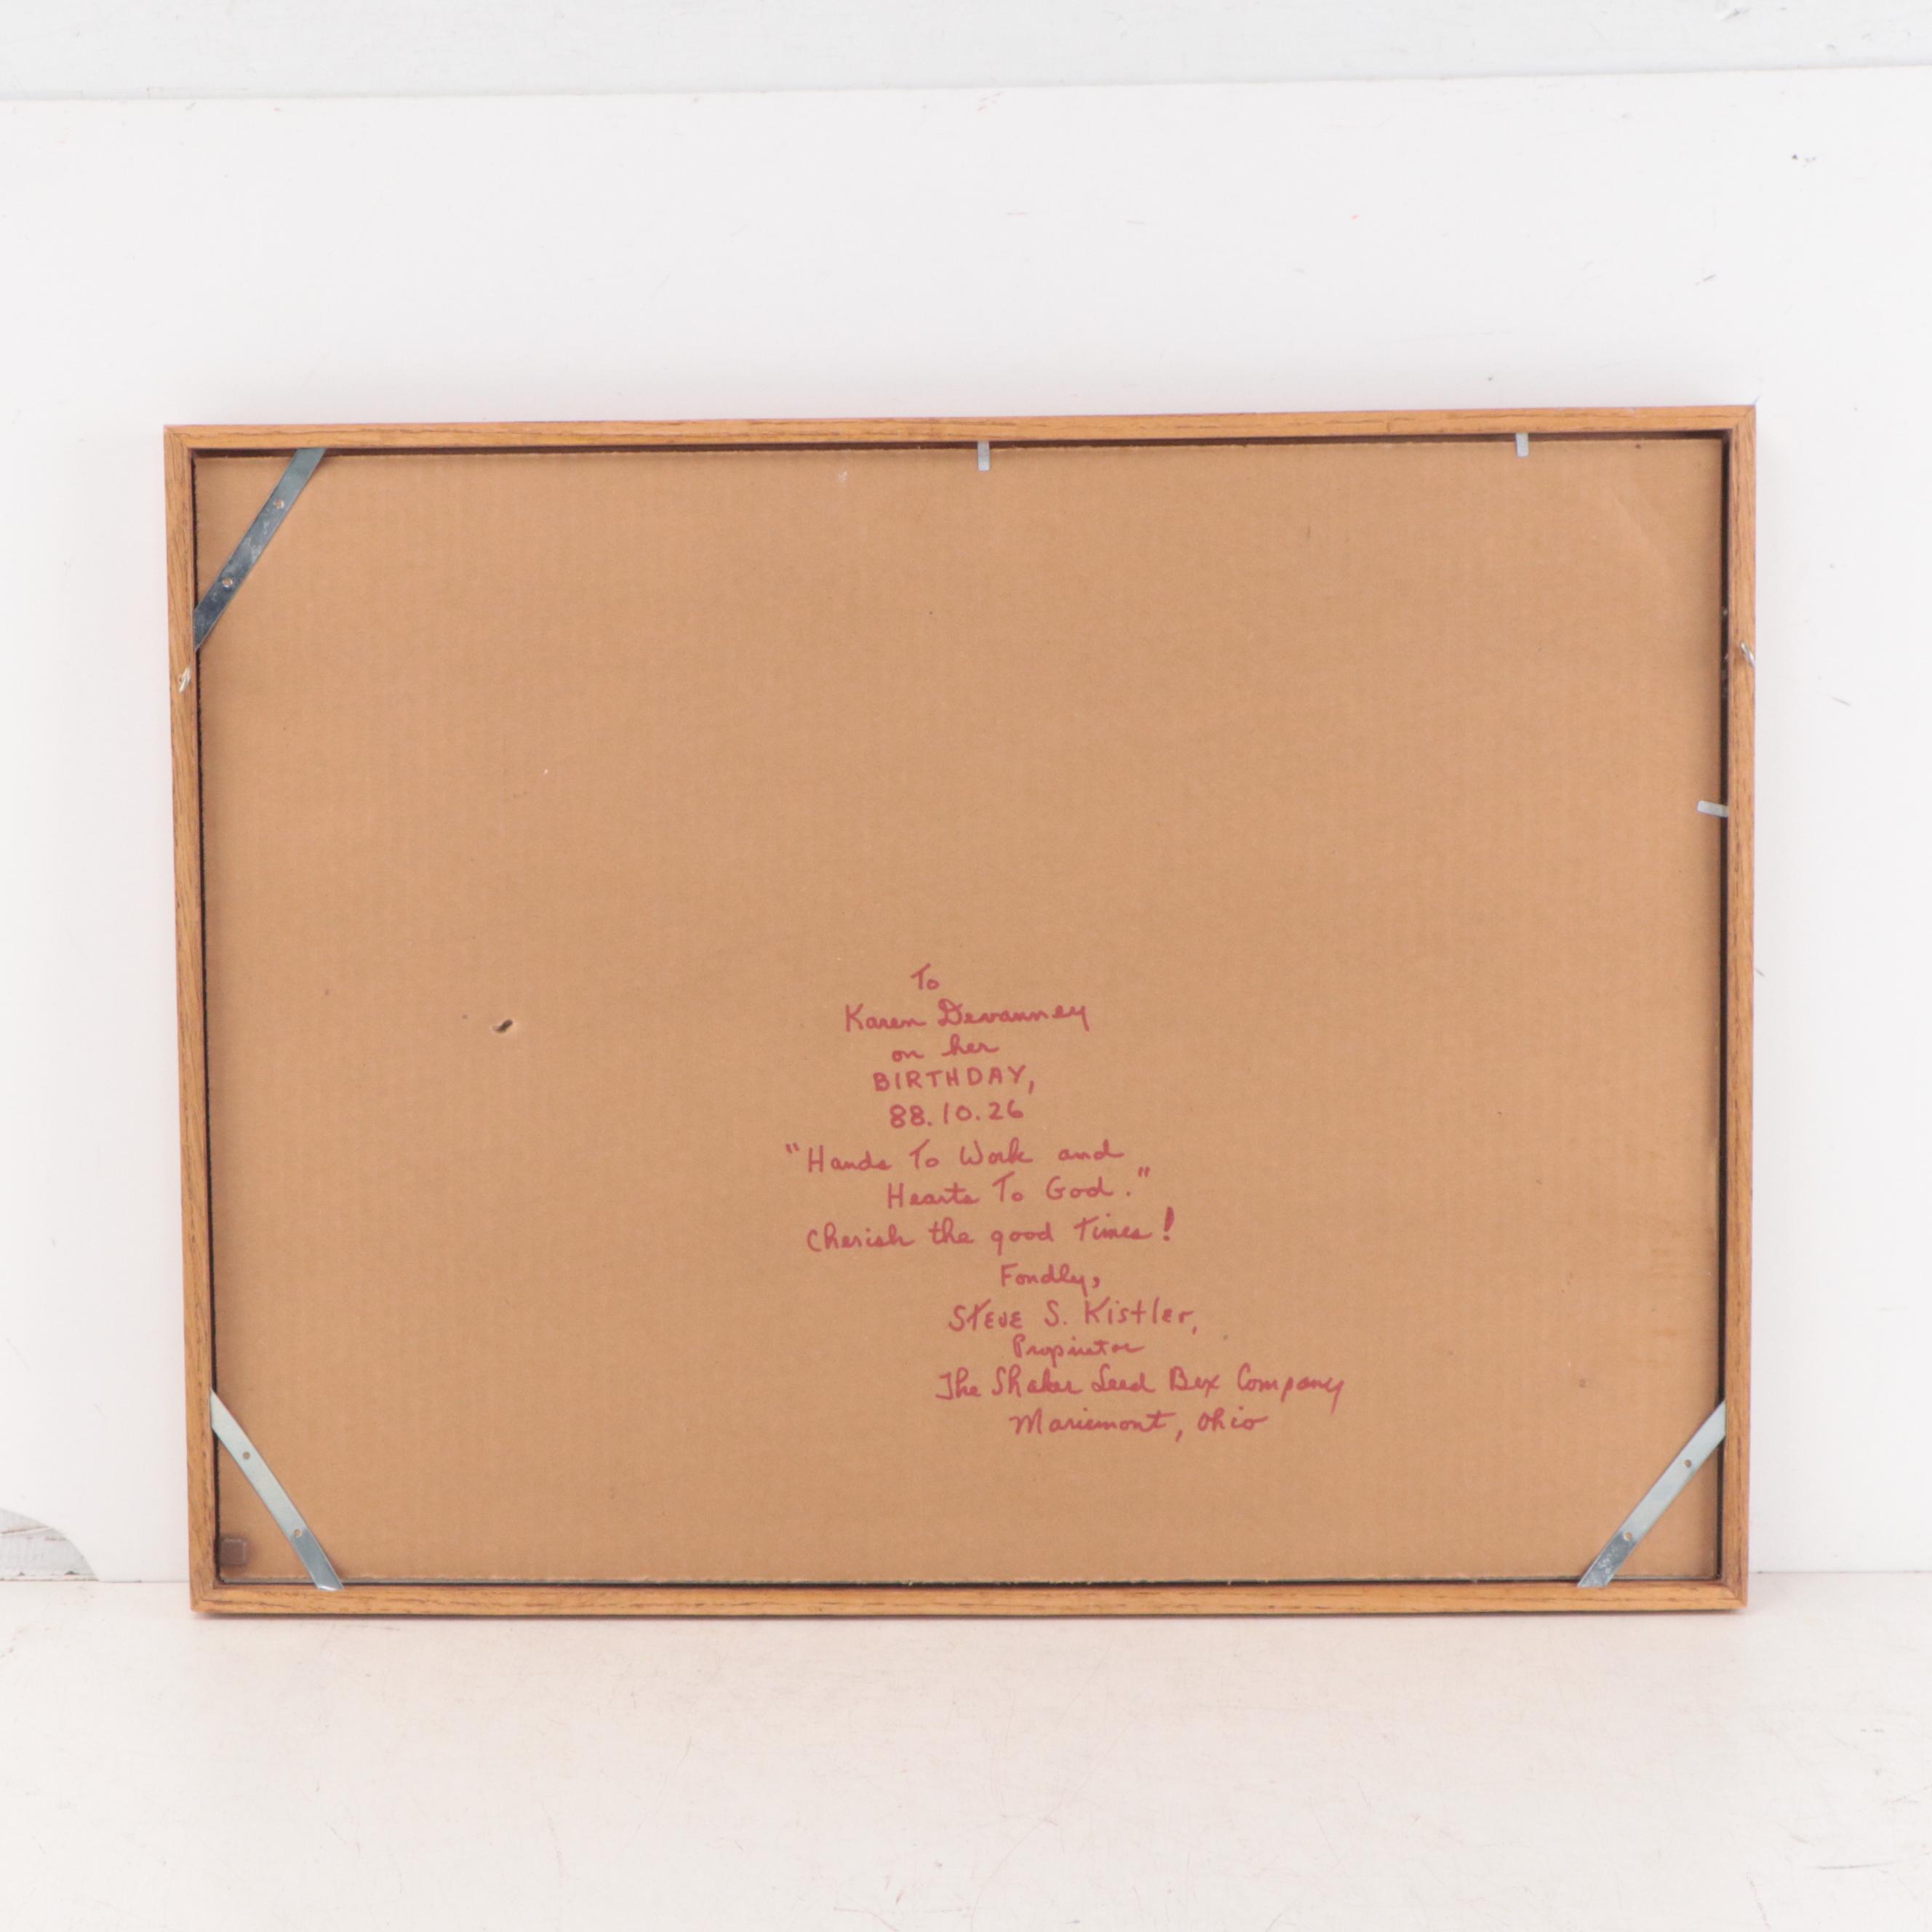 To
Karen Devanney
on her
BIRTHDAY,
88.10.26
"Hands To Work and
Hearts To God."
Cherish the good times!
Fondly,
Steve S. Kistler,
Proprietor
The Shaker Seed Box Company
Mariemont, Ohio